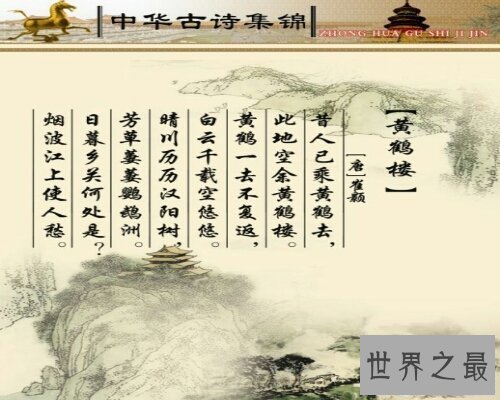 中华古诗集锦
ZHONG HUA GU SHI JI JIN
【黄鹤楼】
［唐］崔颢
昔人已乘黄鹤去，
此地空余黄鹤楼。
黄鹤一去不复返，
白云千载空悠悠。
晴川历历汉阳树，
芳草萋萋鹦鹉洲。
日暮乡关何处是？
烟波江上使人愁。
世界之最